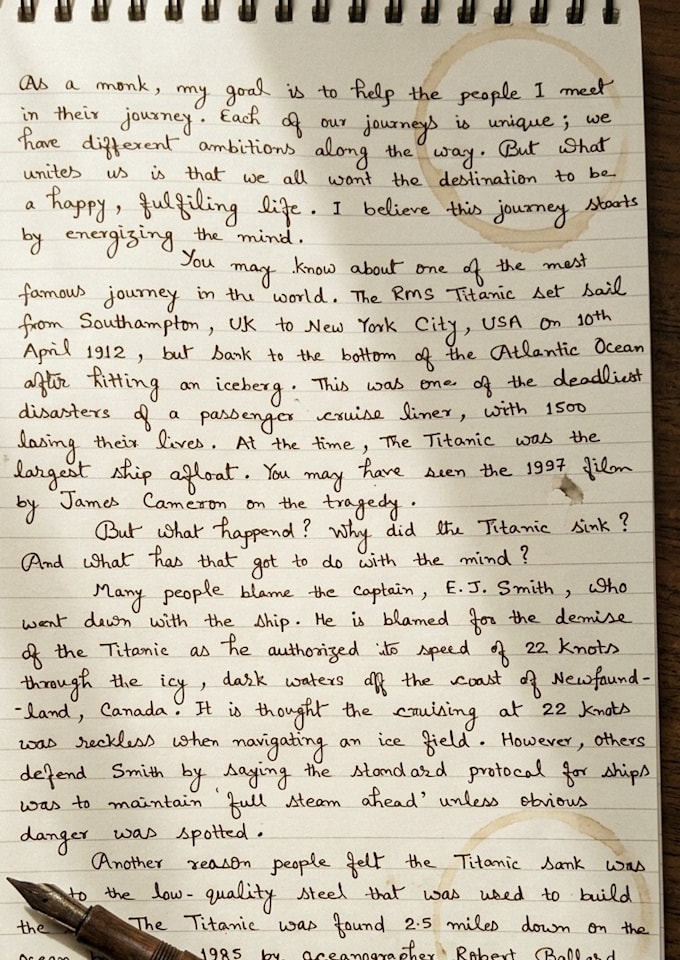 As a monk, my goal is to help the people I meet
in their journey. Each of our journeys is unique; we
have different ambitions along the way. But what
unites us is that we all want the destination to be
a happy, fulfiling life. I believe this journey starts
by energizing the mind.
You may know about one of the most
famous journey in the world. The RMS Titanic set sail
from Southampton, UK to New York City, USA on 10th
April 1912, but sank to the bottom of the Atlantic Ocean
after hitting an iceberg. This was one of the deadliest
disasters of a passenger cruise liner, with 1500
losing their lives. At the time, The Titanic was the
largest ship afloat. You may have seen the 1997 film
by James Cameron on the tragedy.
But what happend? Why did the Titanic sink?
And what has that got to do with the mind?
Many people blame the captain, E.J. Smith, who
went down with the ship. He is blamed for the demise
of the Titanic as he authorized to speed of 22 knots
through the icy, dark waters off the coast of Newfound-
-land, Canada. It is thought the cruising at 22 knots
was reckless when navigating an ice field. However, others
defend Smith by saying the standard protocal for ships
was to maintain 'full steam ahead' unless obvious
danger was spotted.
Another reason people felt the Titanic sank was
to the low-quality steel that was used to build
the The Titanic was found 2.5 miles down on the
ocean 1985 by oceanographer Robert Ballard